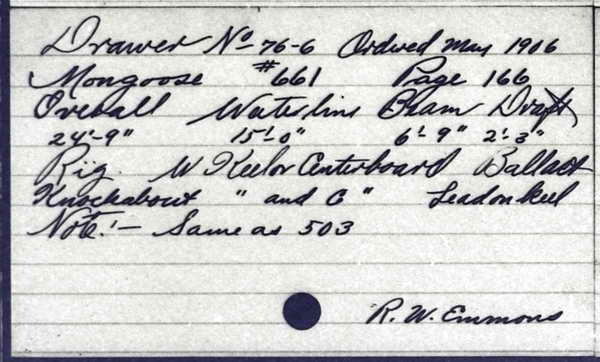 Drawer No 76-6 Ordered May 1906
Mongoose #661 Page 166
Overall Waterline Beam Draft
24'-9" 15'-0" 6'-9" 2'-3"
Rig. W Keel or Centerboard Ballast
Knockabout " and C " Lead on keel
Note:- Same as 503
R. W. Emmons